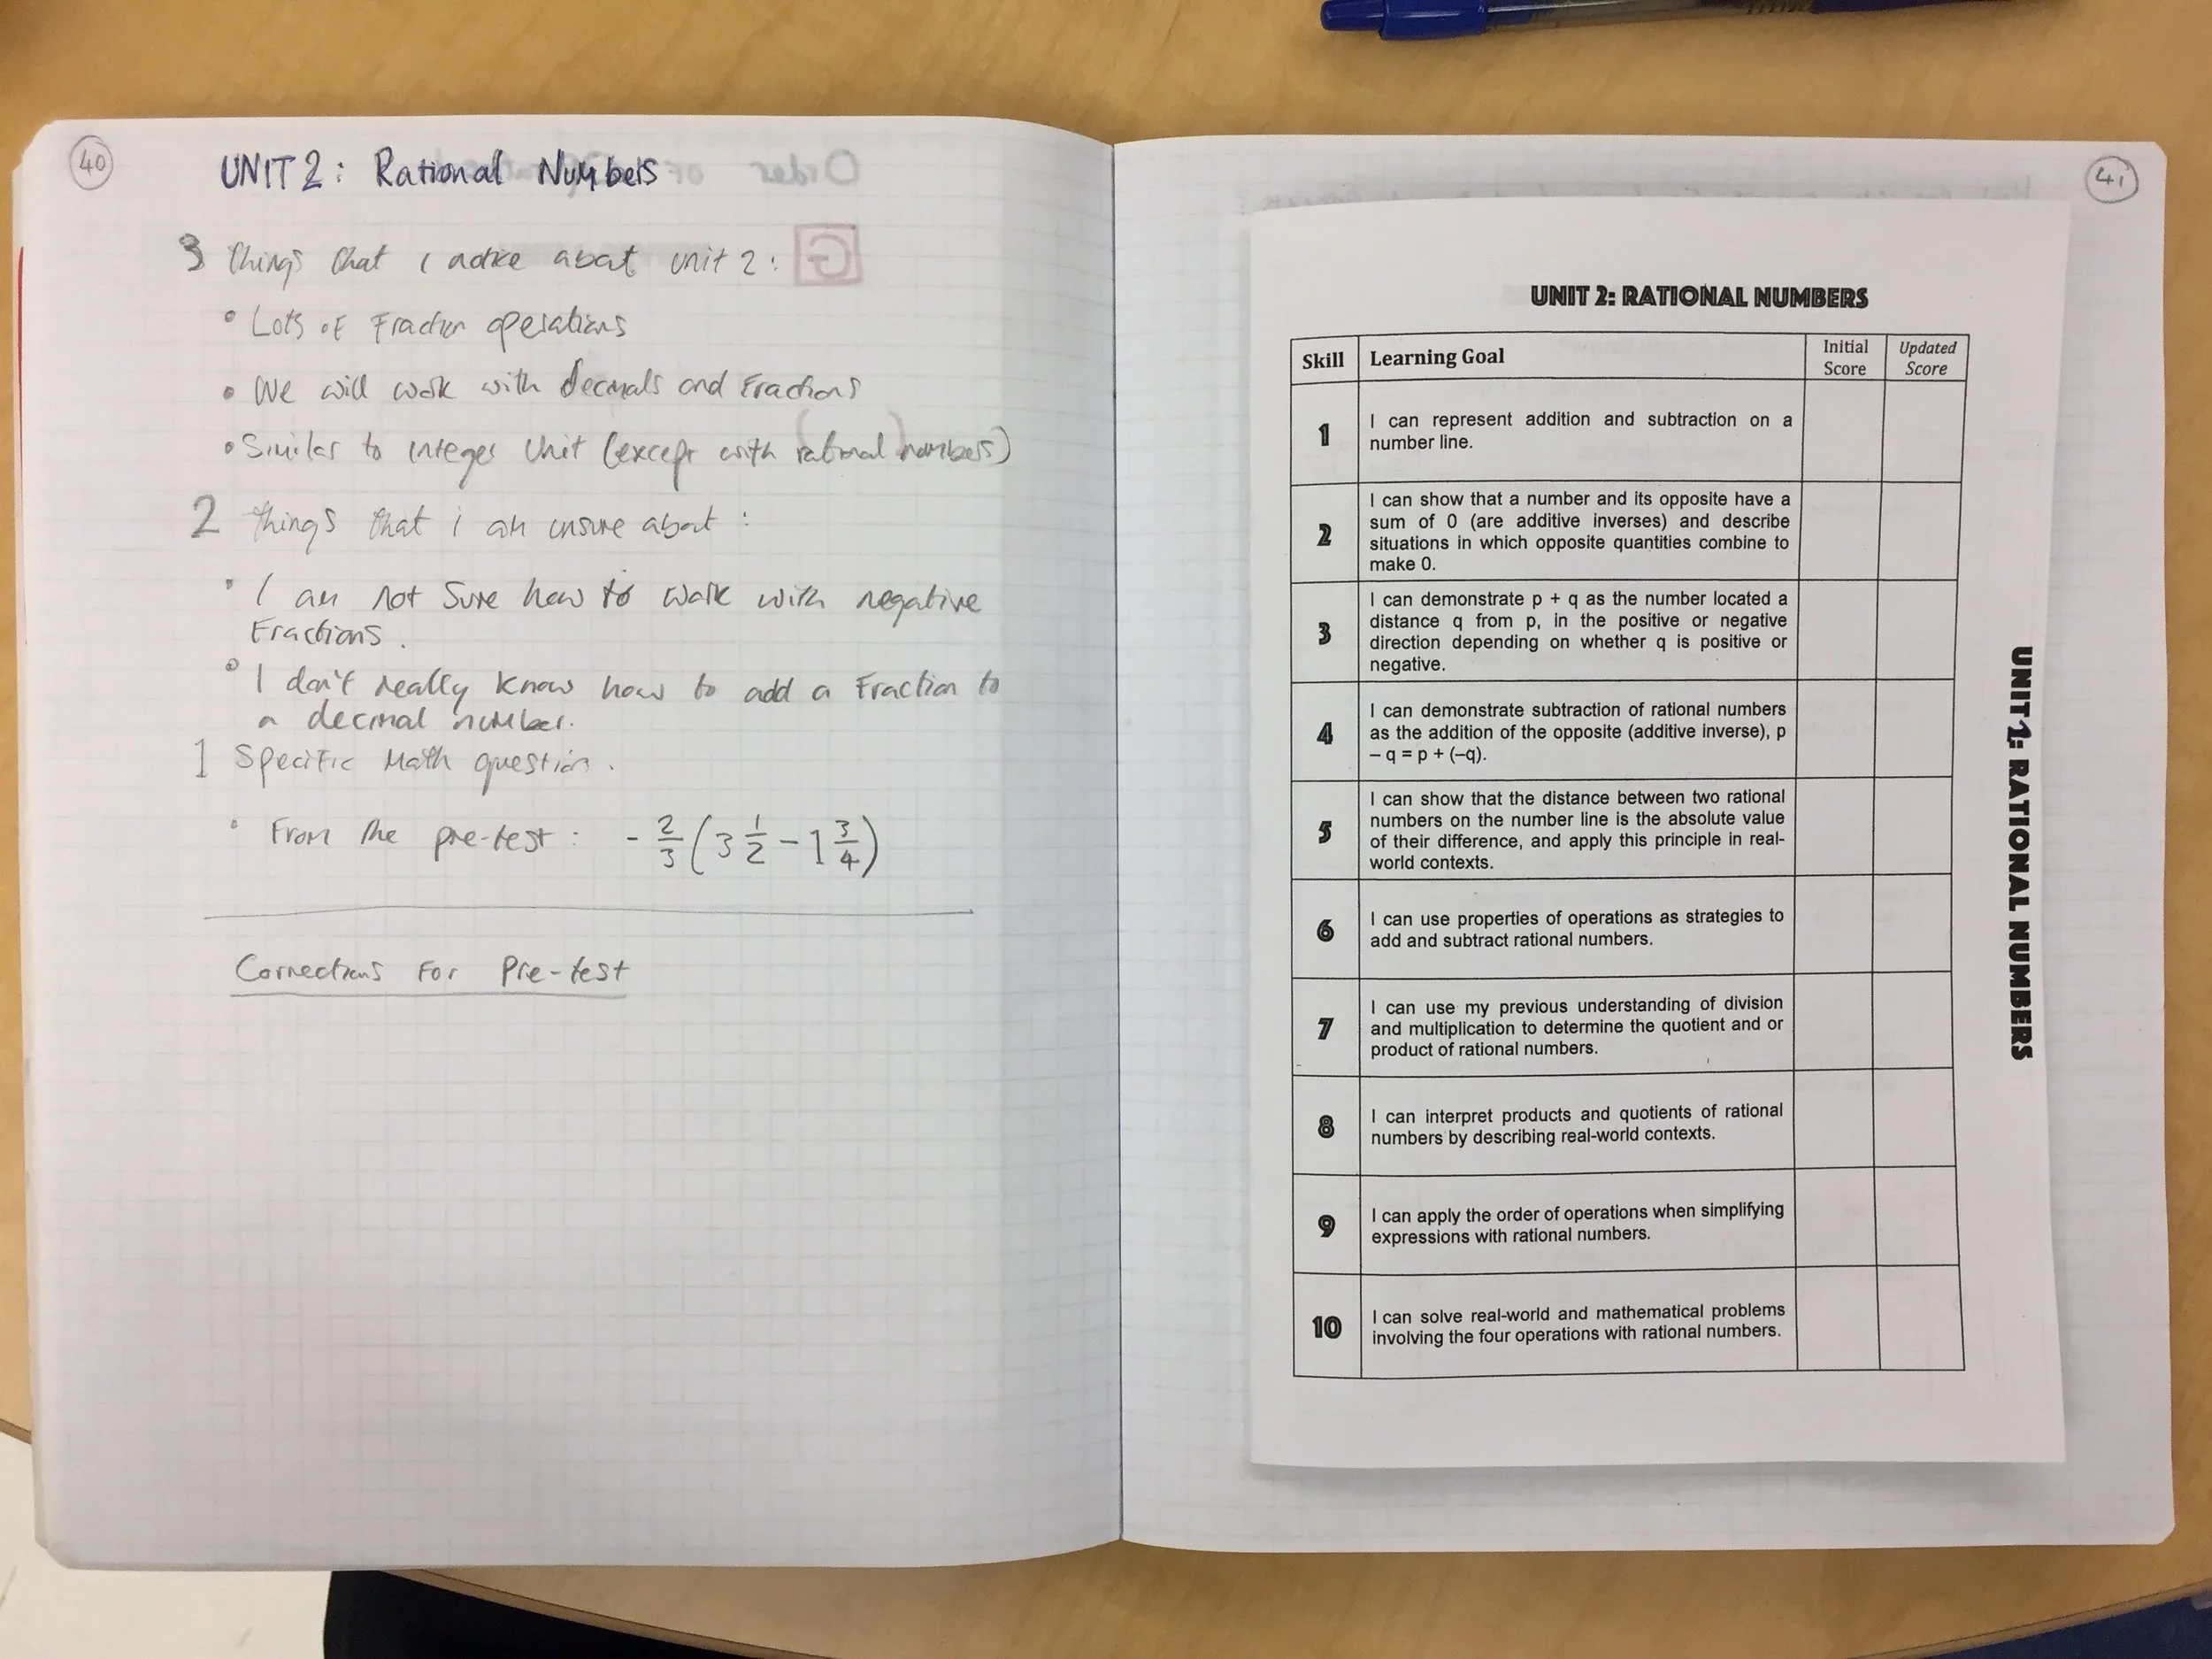 40
UNIT 2: Rational Numbers
3 things that I notice about unit 2:
G
• Lots of Fraction operations
• We will work with decimals and Fractions
• Similar to integer Unit (except with rational numbers)
2 things that i am unsure about:
• I am not sure how to work with negative
Fractions.
• I don't really know how to add a Fraction to
a decimal number.
1 Specific Math question.
• From the pre-test: - 2/3 (3 1/2 - 1 3/4)
Corrections For Pre-test
41
UNIT 2: RATIONAL NUMBERS
Skill Learning Goal Initial Score Updated Score
1 I can represent addition and subtraction on a
number line.
2 I can show that a number and its opposite have a
sum of 0 (are additive inverses) and describe
situations in which opposite quantities combine to
make 0.
3 I can demonstrate p + q as the number located a
distance q from p, in the positive or negative
direction depending on whether q is positive or
negative.
4 I can demonstrate subtraction of rational numbers
as the addition of the opposite (additive inverse), p
– q = p + (–q).
5 I can show that the distance between two rational
numbers on the number line is the absolute value
of their difference, and apply this principle in real-
world contexts.
6 I can use properties of operations as strategies to
add and subtract rational numbers.
7 I can use my previous understanding of division
and multiplication to determine the quotient and or
product of rational numbers.
8 I can interpret products and quotients of rational
numbers by describing real-world contexts.
9 I can apply the order of operations when simplifying
expressions with rational numbers.
10 I can solve real-world and mathematical problems
involving the four operations with rational numbers.
UNIT 1: RATIONAL NUMBERS